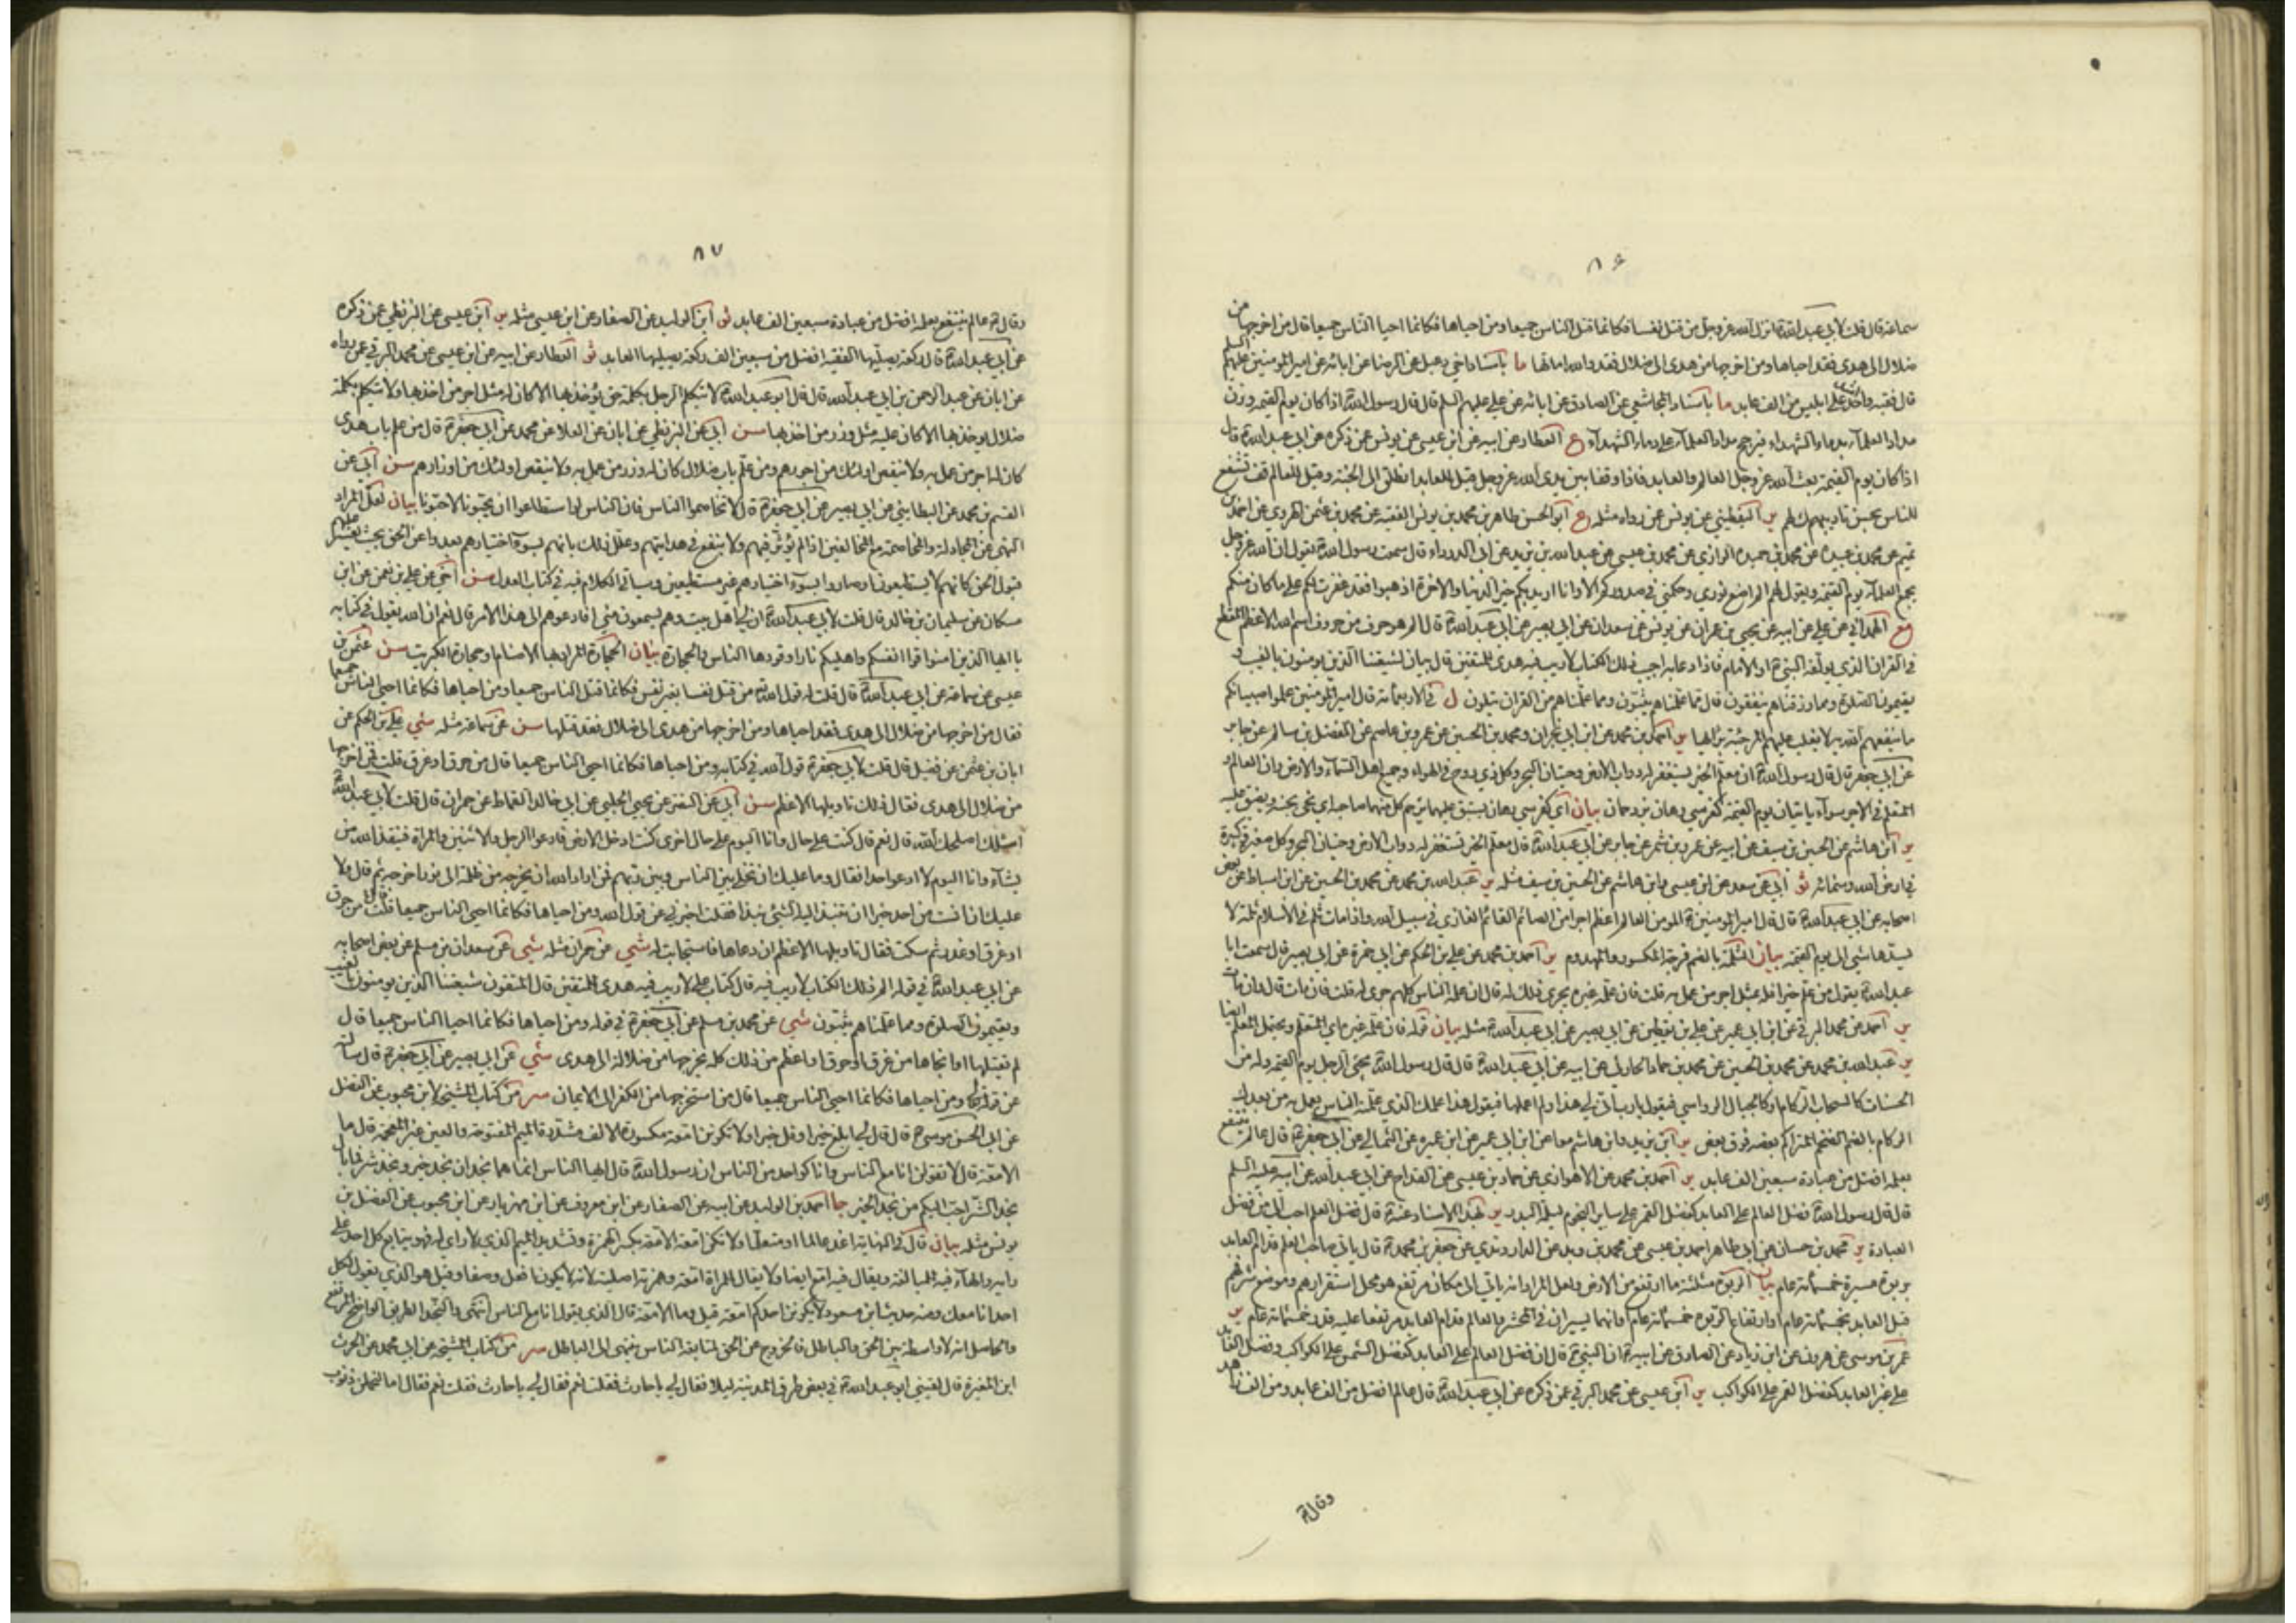 ۸۶
سماعة قال قلت لابي عبد الله ع انزل الله عز وجل من قتل نفسا فكانما قتل الناس جميعا ومن احياها فكانما احيا الناس جميعا قال من اخرجها من
ضلال الى هدى فقد احياها ومن اخرجها من هدى الى ضلال فقد والله اماتها ما باسناد اخي دعبل عن الرضا عن ابائه عن امير المؤمنين عليهم السلم
قال فقيه واحد اشد على ابليس من الف عابد ما باسناد المجاشعي عن الصادق عن ابائه عن علي عليهم السلم قال قال رسول الله ص اذا كان يوم القيمة وزن
مداد العلمآء بدماء الشهداء فيرجح مداد العلمآء على دماء الشهدآء ع العطار عن ابيه عن ابن عيسى عن يونس عن ذكره عن ابي عبد الله ع قال
اذا كان يوم القيمة بعث الله عز وجل العالم والعابد فاذا وقفا بين يدي الله عز وجل قيل للعابد انطلق الى الجنة وقيل للعالم قف تشفع
للناس بحسن تاديبهم لهم ير اليقطيني عن يونس عن رواه مثله ع ابو الحسن طاهر بن محمد بن يونس الفقيه عن محمد بن عثمن الهروي عن احمد بن
تميم عن محمد بن عبيدة عن محمد بن حميدة الرازي عن محمد بن عيسى عن عبد الله بن يزيد عن ابي الدرداء قال سمعت رسول الله ص يقول ان الله عز وجل
يجمع العلمآء يوم القيمة ويقول لهم لم اضع نوري وحكمتي في صدوركم الا وانا اريد بكم خير الدنيا والاخرة اذهبوا فقد غفرت لكم على ما كان منكم
مع الهمداني عن علي عن ابيه عن يحيى بن عمران عن يونس عن سعدان عن ابي بصير عن ابي عبد الله ع قال الم هو حرف من حروف اسم الله الاعظم المقطع
في القران الذي يؤلفه النبي ص او الامام فاذا دعا به اجيب ذلك الكتاب لا ريب فيه هدى للمتقين قال بيان لشيعتنا الذين يؤمنون بالغيب و
يقيمون الصلوة ومما رزقناهم ينفقون قال مما علمناهم يبثون ومما علمناهم من القران يتلون ل في الاربعمائة قال امير المؤمنين علموا صبيانكم
ما ينفعهم الله به لا يغلب عليهم المرجئة برايها ير احمد بن محمد عن ابن ابي نجران ومحمد بن الحسين عن عمرو بن عاصم عن المفضل بن سالم عن جابر
عن ابي جعفر ع قال قال رسول الله ص ان معلم الخير يستغفر له دواب الارض وحيتان البحر وكل ذي روح في الهواء وجميع اهل السماء والارض وان العالم و
المتعلم في الاجر سوآء ياتيان يوم القيمة كفرسي رهان يزدحمان بيان اي كفرسي رهان يتسابق عليهما يزحم كل منهما صاحبه اي يجيء بجنبه ويضيق عليه
ير ابن هاشم عن الحسين بن سيف عن ابيه عن عمرو بن شمر عن جابر عن ابي عبد الله ع قال معلم الخير تستغفر له دواب الارض وحيتان البحر وكل صغيرة وكبيرة
في ارض الله وسمائه ثو ابي عن سعد عن ابن عيسى وابن هاشم عن الحسين بن سيف مثله ير عبد الله بن محمد عن محمد بن الحسين عن ابن اسباط عن بعض
اصحابه عن ابي عبد الله ع قال قال امير المؤمنين ع المؤمن العالم اعظم اجرا من الصائم القائم الغازي في سبيل الله واذا مات ثلم في الاسلام ثلمة لا
يسدها شيء الى يوم القيمة بيان الثلمة بالضم فرجة المكسور والمهدوم ير احمد بن محمد عن علي بن الحكم عن ابي حمزة عن ابي بصير قال سمعت ابا
عبد الله ع يقول من علم خيرا فله بمثل اجر من عمل به قلت فان علمه غيره يجري ذلك له قال ان علمه الناس كلهم جرى له قلت فان مات قال وان مات
ير احمد عن محمد البرقي عن ابن ابي عمير عن علي بن يقطين عن ابي بصير عن ابي عبد الله ع مثله بيان قوله فان علمه غيره اي المتعلم ويحتمل المعلم ايضا
ير عبد الله بن محمد عن محمد بن الحسين عن محمد بن حماد الحارثي عن ابيه عن ابي عبد الله ع قال قال رسول الله ص يجيء الرجل يوم القيمة وله من
الحسنات كالسحاب الركام او كالجبال الرواسي فيقول يا رب انى لي هذا ولم اعملها فيقول هذا علمك الذي علمته الناس يعمل به من بعدك
الركام بالضم الضخم المتراكم بعضه فوق بعض ير ابن يزيد وابن هاشم معا عن ابن ابي عمير عن ابن عميرة عن الثمالي عن ابي جعفر ع قال عالم ينتفع
بعلمه افضل من عبادة سبعين الف عابد ير احمد بن محمد عن الاهوازي عن حماد بن عيسى عن القداح عن ابي عبد الله عن ابيه عليه السلم
قال قال رسول الله ص فضل العالم على العابد كفضل القمر على ساير النجوم ليلة البدر ير بهذا الاسناد عنه ص قال فضل العلم احب الي من فضل
العبادة ير محمد بن حسان عن ابي طاهر احمد بن عيسى عن محمد بن زيد عن الداروندي عن جعفر بن محمد ع قال ياتي صاحب العلم قدام العابد
بربوة مسيرة خمسمائة عام بيان الربوة مثلثة ما ارتفع من الارض ولعل المراد انه ياتي الى مكان مرتفع هو محل استقرارهم وموضع شرفهم
قبل العابد بخمسمائة عام او ارتفاع الربوة خمسمائة عام او انهما يسيران في المحشر والعالم قدام العابد مرتفعا عليه قدر خمسمائة عام ير
عمر بن موسى عن هرون عن ابن زياد عن الصادق عن ابيه ع ان النبي ص قال ان فضل العالم على العابد كفضل الشمس على الكواكب وفضل العابد
على غير العابد كفضل القمر على الكواكب ير ابن عيسى عن محمد البرقي عن ذكره عن ابي عبد الله ع قال عالم افضل من الف عابد ومن الف زاهد
وقال ع
۸۷
وقال ع عالم ينتفع بعلمه افضل من عبادة سبعين الف عابد ثو ابن الوليد عن الصفار عن ابن عيسى مثله ير ابن عيسى عن البزنطي عمن ذكره
عن ابي عبد الله ع قال ركعة يصليها الفقيه افضل من سبعين الف ركعة يصليها العابد ثو العطار عن ابيه عن ابن عيسى عن محمد البرقي عمن رواه
عن ابان عن عبد الرحمن بن ابي عبد الله قال قال ابو عبد الله ع لا يتكلم الرجل بكلمة حق يؤخذ بها الا كان له مثل اجر من اخذ بها ولا يتكلم بكلمة
ضلال يؤخذ بها الا كان عليه مثل وزر من اخذ بها سن ابي عن البزنطي عن ابان عن العلا عن محمد عن ابي جعفر ع قال من علم باب هدى
كان له اجر من عمل به ولا ينقص اولئك من اجورهم ومن علم باب ضلال كان له وزر من عمل به ولا ينقص اولئك من اوزارهم سن ابي عن
القسم بن محمد عن البطايني عن ابي بصير عن ابي جعفر ع قال لا تخاصموا الناس فان الناس لو استطاعوا ان يحبونا لاحبونا بيان لعل المراد
النهي عن المجادلة والمخاصمة مع المخالفين اذا لم يؤثر فيهم ولا ينفع في هدايتهم وعلل ذلك بانهم لسوء اختيارهم بعدوا عن الحق بحيث يعسر عليهم
قبول الحق كانهم لا يستطيعونه او صاروا بسوء اختيارهم غير مستطيعين وسياتي الكلام فيه في كتاب العدل سن اخي عن علي بن نعمن عن ابن
مسكان عن سليمان بن خالد قال قلت لابي عبد الله ع ان لي اهل بيت وهم يسمعون مني افادعوهم الى هذا الامر قال نعم ان الله يقول في كتابه
يا ايها الذين امنوا قوا انفسكم واهليكم نارا وقودها الناس والحجارة بيان الحجارة المراد بها الاصنام او حجارة الكبريت سن عثمن بن
عيسى عن سماعة عن ابي عبد الله ع قال قلت له قول الله من قتل نفسا بغير نفس فكانما قتل الناس جميعا ومن احياها فكانما احيى الناس جميعا
فقال من اخرجها من ضلال الى هدى فقد احياها ومن اخرجها من هدى الى ضلال فقد قتلها سن عن سماعة مثله شي علي بن الحكم عن
ابان بن عثمن عن فضيل قال قلت لابي جعفر ع قول الله في كتابه ومن احياها فكانما احيى الناس جميعا قال من حرق او غرق قلت فمن اخرجها
من ضلال الى هدى فقال ذلك تاويلها الاعظم سن ابي عن النضر عن يحيى الحلبي عن ابي خالد القماط عن حمران قال قلت لابي عبد الله ع
اسئلك اصلحك الله قال نعم قال كنت على حال وانا اليوم على حال اخرى كنت ادخل الارض فادعو الرجل والاثنين والمراة فينقذ الله من
يشآء وانا اليوم لا ادعو احدا فقال وما عليك ان تخلي بين الناس وبين ربهم فمن اراد الله ان يخرجه من ظلمة الى نور اخرجه ثم قال ولا
عليك ان انست من احد خيرا ان تنبذ اليه الشيء نبذا فقلت اخبرني عن قول الله ومن احياها فكانما احيى الناس جميعا قال من حرق
او غرق او غدر ثم سكت فقال تاويلها الاعظم ان دعاها فاستجابت له شي عن حمران مثله شي عن سعدان بن مسلم عن بعض اصحابه
عن ابي عبد الله ع في قوله الم ذلك الكتاب لا ريب فيه قال كتاب علي لا ريب فيه هدى للمتقين قال المتقون شيعتنا الذين يؤمنون بالغيب
ويقيمون الصلوة ومما علمناهم يبثون شي عن محمد بن مسلم عن ابي جعفر ع في قوله ومن احياها فكانما احيا الناس جميعا قال
لم يقتلها او انجاها من غرق او حرق او اعظم من ذلك كله يخرجها من ضلالة الى هدى شي عن ابي بصير عن ابي جعفر ع قال سالته
عن قوله ومن احياها فكانما احيى الناس جميعا قال من استخرجها من الكفر الى الايمان سر من كتاب المشيخة لابن محبوب عن الفضل
عن ابي الحسن موسى ع قال قال لي ابلغ خيرا وقل خيرا ولا تكونن امعة مكسورة الالف مشددة الميم المفتوحة والعين غير المعجمة قال وما
الامعة قال لا تقولن انا مع الناس وانا كواحد من الناس ان رسول الله ص قال ايها الناس انما هما نجدان نجد خير ونجد شر فما بال
نجد الشر احب اليكم من نجد الخير جا احمد بن الوليد عن ابيه عن الصفار عن ابن معروف عن ابن مهزيار عن ابن محبوب عن الفضل بن
يونس مثله بيان قال في النهاية اغد عالما او متعلما ولا تكن امعة الامعة بكسر الهمزة وتشديد الميم الذي لا راي له فهو يتابع كل احد على
رايه والهآء فيه للمبالغة ويقال فيه امع ايضا ولا يقال للمراة امعة وهمزته اصلية لانه لا يكون افعل وصفا وقيل هو الذي يقول لكل
احد انا معك ومنه حديث ابن مسعود لا يكونن احدكم امعة قيل وما الامعة قال الذي يقول انا مع الناس انتهى والنجد الطريق الواضح المرتفع
والحاصل انه لا واسطة بين الحق والباطل فالخروج عن الحق لمتابعة الناس ينتهي الى الباطل سر من كتاب المشيخة عن ابي محمد عن الحرث
ابن المغيرة قال لقيني ابو عبد الله ع في بعض طرق المدينة ليلا فقال لي يا حارث فقلت نعم فقال لي يا حارث فقلت نعم فقال اما لتحملن ذنوب